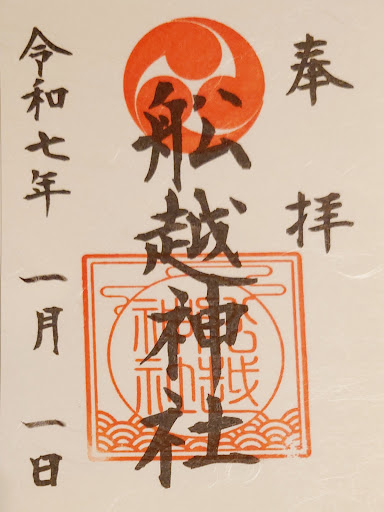 奉拝
舩越神社
船越神社
令和七年 一月 一日